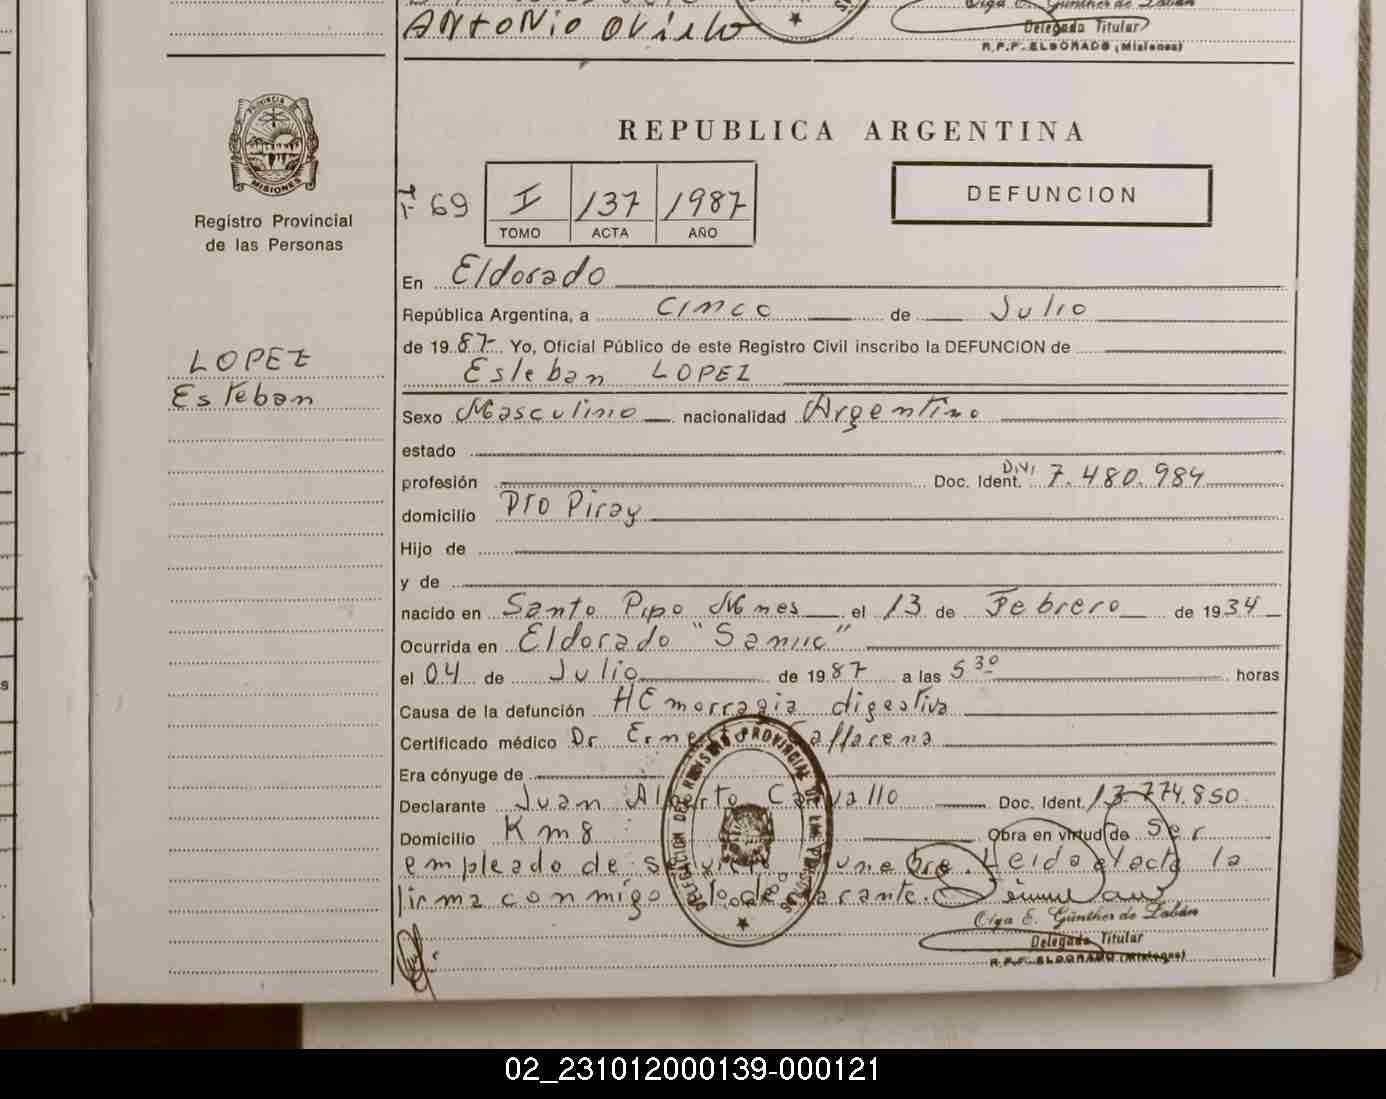 ANTONIO OVIEDO
Olga E. Günther de Labán
Delegada Titular
R.P.P. ELDORADO (Misiones)
PROVINCIA DE
MISIONES
Registro Provincial
de las Personas
REPUBLICA ARGENTINA
DEFUNCION
Fº 69
I 137 1987
TOMO ACTA AÑO
En Eldorado
República Argentina, a Cinco de Julio
de 1987 Yo, Oficial Público de este Registro Civil inscribo la DEFUNCION de
Esteban LOPEZ
LOPEZ
Esteban
Sexo Masculino nacionalidad Argentino
estado
profesión Doc. Ident. D.N.I 7.480.984
domicilio Pto Piray
Hijo de
y de
nacido en Santo Pipo Mnes el 13 de Febrero de 1934
Ocurrida en Eldorado "Samic"
el 04 de Julio de 1987 a las 5 30 horas
Causa de la defunción HEmorragia digestiva
Certificado médico Dr
Era cónyuge de
Declarante Juan Alberto Carvallo Doc. Ident. 13.774.850
Domicilio Km 8 Obra en virtud de Ser
empleado de servicio funebre. Leida el acta la
firma conmigo el declarante.
DELEGACION DEL REGISTRO PROVINCIAL DE LAS PERSONAS
Olga E. Günther de Labán
Delegada Titular
R.P.P. ELDORADO (Misiones)
02_231012000139-000121